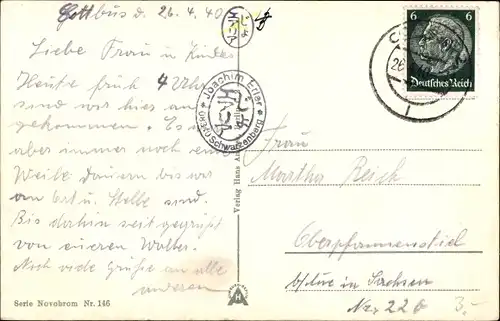 Cottbus d. 26.4.40
Liebe Frau u Kinder
Heute früh 4 Uhr
sind wir hier an
gekommen. Es
aber immer noch eine
Weile dauern bis wir
an Ort u. Stelle sind.
Bis dorthin seit gegrüßt
von eueren Walter.
Noch viele Grüße an alle
anderen
Serie Novobrom Nr. 146
Joachim Erler
Schwarzenberg
Verlag Hans
6 6
Deutsches Reich
26
Frau
Martha Reich
Oberpfannenstiel
b/Aue in Sachsen
Nr. 226
3,-